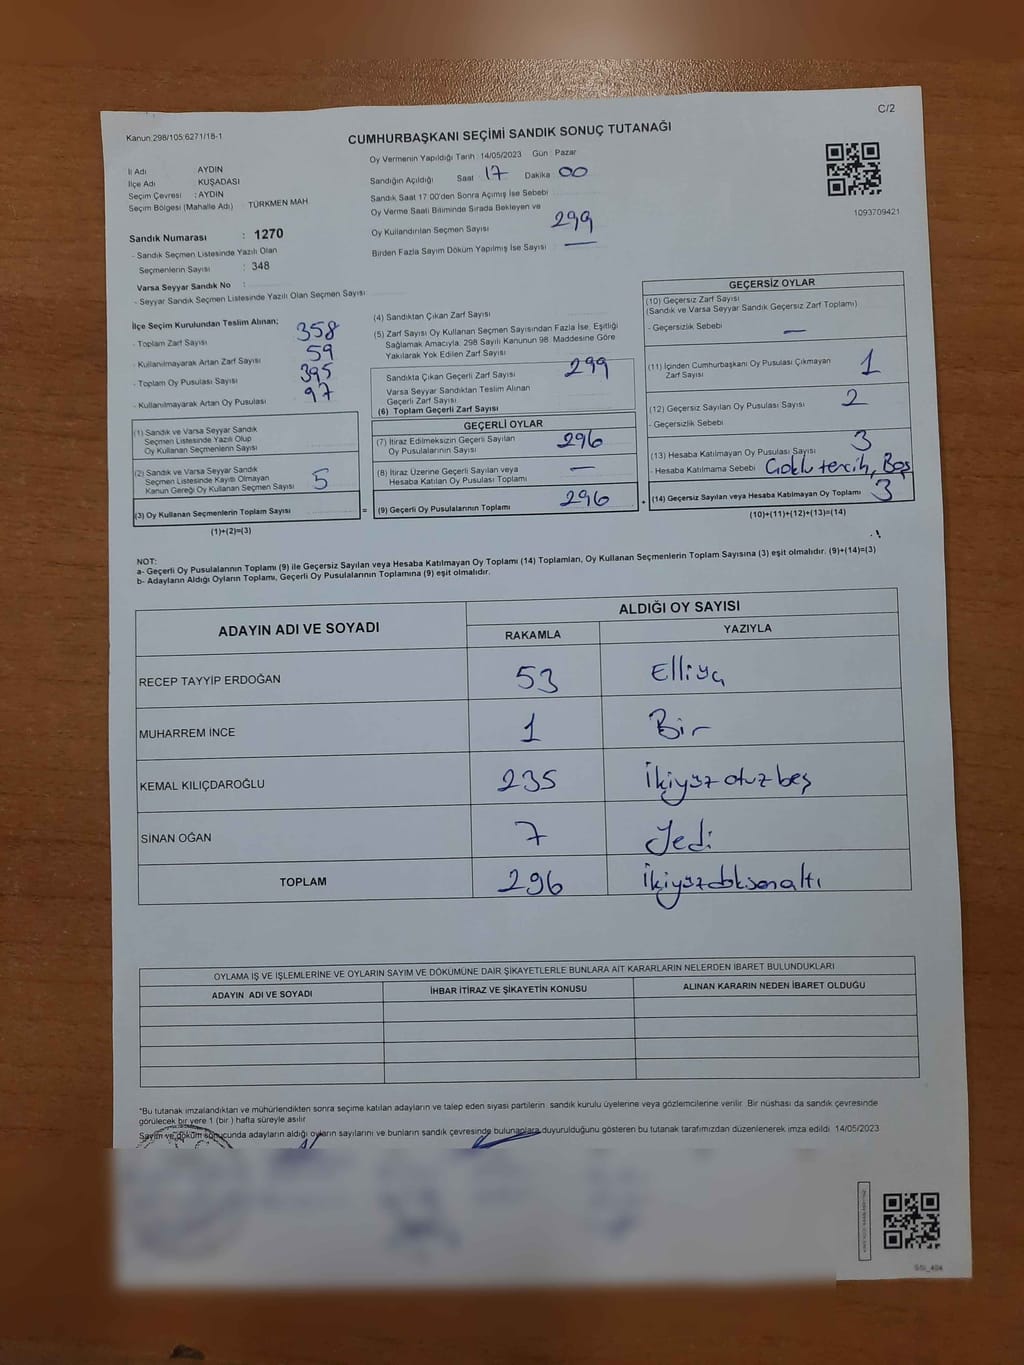 C/2
Kanun:298/105;6271/18-1
CUMHURBAŞKANI SEÇİMİ SANDIK SONUÇ TUTANAĞI
İl Adı AYDIN
İlçe Adı KUŞADASI
Seçim Çevresi : AYDIN
Seçim Bölgesi (Mahalle Adı) : TÜRKMEN MAH
Sandık Numarası : 1270
- Sandık Seçmen Listesinde Yazılı Olan
Seçmenlerin Sayısı : 348
Varsa Seyyar Sandık No :
- Seyyar Sandık Seçmen Listesinde Yazılı Olan Seçmen Sayısı
Oy Vermenin Yapıldığı Tarih : 14/05/2023 Gün : Pazar
Sandığın Açıldığı Saat 17 Dakika 00
Sandık Saat 17:00'den Sonra Açımış İse Sebebi
Oy Verme Saati Bitiminde Sırada Bekleyen ve
Oy Kullandırılan Seçmen Sayısı 299
Birden Fazla Sayım Döküm Yapılmış İse Sayısı —
1093709421
İlçe Seçim Kurulundan Teslim Alınan;
- Toplam Zarf Sayısı 358
- Kullanılmayarak Artan Zarf Sayısı 59
- Toplam Oy Pusulası Sayısı 395
- Kullanılmayarak Artan Oy Pusulası 97
(1) Sandık ve Varsa Seyyar Sandık
Seçmen Listesinde Yazılı Olup
Oy Kullanan Seçmenlerin Sayısı
(2) Sandık ve Varsa Seyyar Sandık
Seçmen Listesinde Kayıtlı Olmayan
Kanun Gereği Oy Kullanan Seçmen Sayısı 5
(3) Oy Kullanan Seçmenlerin Toplam Sayısı
(1)+(2)=(3)
(4) Sandıktan Çıkan Zarf Sayısı
(5) Zarf Sayısı Oy Kullanan Seçmen Sayısından Fazla İse, Eşitliği
Sağlamak Amacıyla, 298 Sayılı Kanunun 98. Maddesine Göre
Yakılarak Yok Edilen Zarf Sayısı
Sandıkta Çıkan Geçerli Zarf Sayısı 299
Varsa Seyyar Sandıktan Teslim Alınan
Geçerli Zarf Sayısı
(6) Toplam Geçerli Zarf Sayısı
GEÇERLİ OYLAR
(7) İtiraz Edilmeksizin Geçerli Sayılan
Oy Pusulalarının Sayısı 296
(8) İtiraz Üzerine Geçerli Sayılan veya
Hesaba Katılan Oy Pusulası Toplamı —
= (9) Geçerli Oy Pusulalarının Toplamı 296 +
GEÇERSİZ OYLAR
(10) Geçersiz Zarf Sayısı
(Sandık ve Varsa Seyyar Sandık Geçersiz Zarf Toplamı)
- Geçersizlik Sebebi —
(11) İçinden Cumhurbaşkanı Oy Pusulası Çıkmayan
Zarf Sayısı 1
(12) Geçersiz Sayılan Oy Pusulası Sayısı 2
- Geçersizlik Sebebi
(13) Hesaba Katılmayan Oy Pusulası Sayısı 3
- Hesaba Katılmama Sebebi Çoklu tercih, Boş
(14) Geçersiz Sayılan veya Hesaba Katılmayan Oy Toplamı 3
(10)+(11)+(12)+(13)=(14)
NOT:
a- Geçerli Oy Pusulalarının Toplamı (9) ile Geçersiz Sayılan veya Hesaba Katılmayan Oy Toplamı (14) Toplamları, Oy Kullanan Seçmenlerin Toplam Sayısına (3) eşit olmalıdır. (9)+(14)=(3)
b- Adayların Aldığı Oyların Toplamı, Geçerli Oy Pusulalarının Toplamına (9) eşit olmalıdır.
ADAYIN ADI VE SOYADI
ALDIĞI OY SAYISI
RAKAMLA YAZIYLA
RECEP TAYYİP ERDOĞAN 53
MUHARREM İNCE 1 Bir
KEMAL KILIÇDAROĞLU 235 İkiyüz otuz beş
SİNAN OĞAN 7 Yedi
TOPLAM 296 İkiyüzdoksan altı
OYLAMA İŞ VE İŞLEMLERİNE VE OYLARIN SAYIM VE DÖKÜMÜNE DAİR ŞİKAYETLERLE BUNLARA AİT KARARLARIN NELERDEN İBARET BULUNDUKLARI
ADAYIN ADI VE SOYADI İHBAR İTİRAZ VE ŞİKAYETİN KONUSU ALINAN KARARIN NEDEN İBARET OLDUĞU
*Bu tutanak imzalandıktan ve mühürlendikten sonra seçime katılan adayların ve talep eden siyasi partilerin sandık kurulu üyelerine veya gözlemcilerine verilir. Bir nüshası da sandık çevresinde
görülecek bir yere 1 (bir) hafta süreyle asılır.
Sayım ve döküm sonucunda adayların aldığı oyların sayılarını ve bunların sandık çevresinde bulunanlara duyurulduğunu gösteren bu tutanak tarafımızdan düzenlenerek imza edildi. 14/05/2023